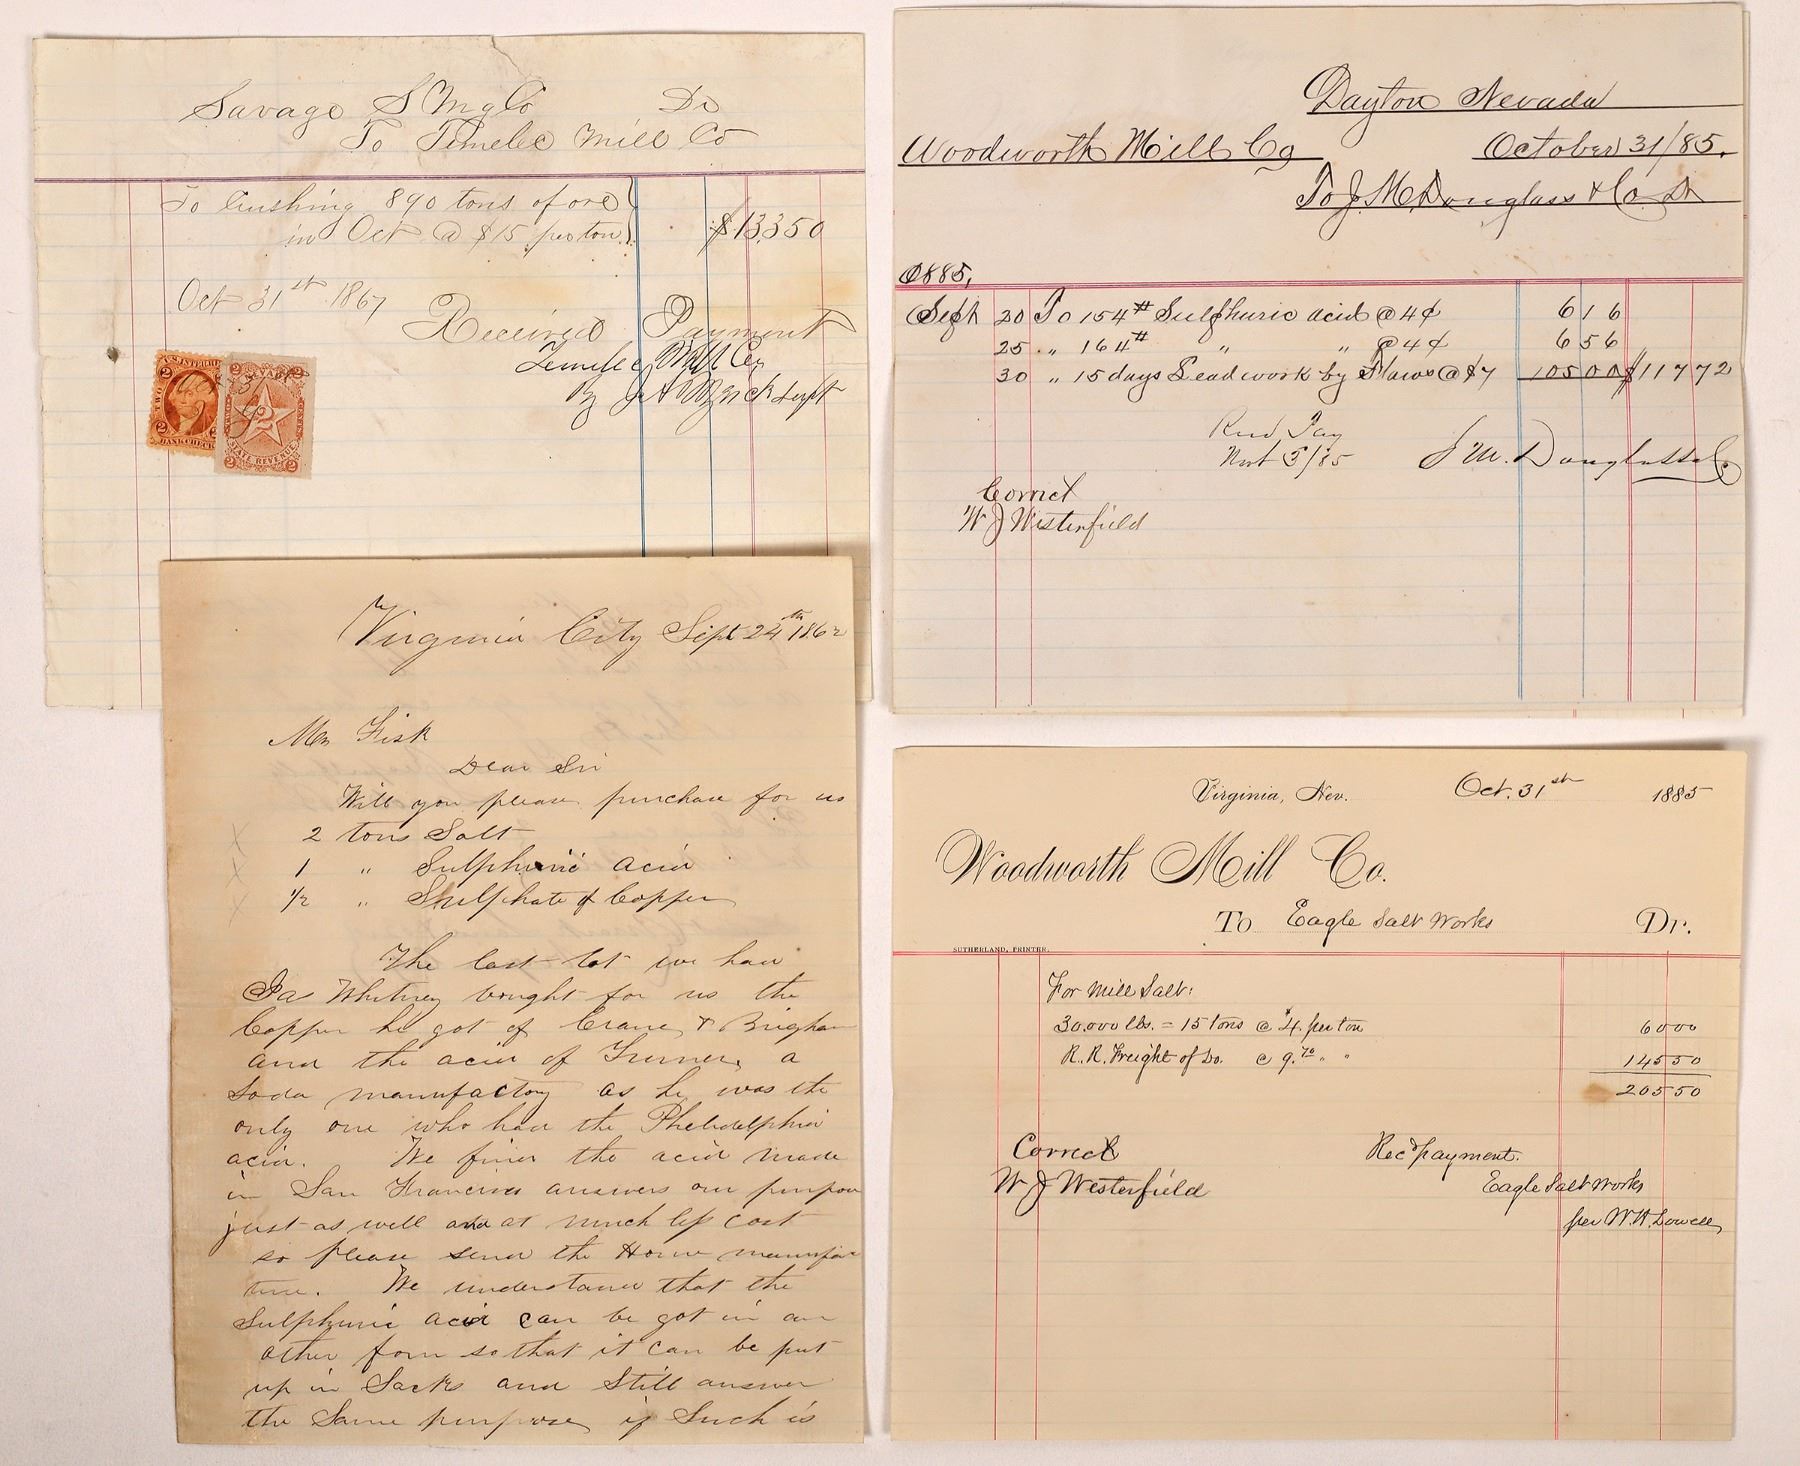 Savage S Mg Co Dr
To Temelec Mill Co
To Crushing 890 tons of ore
in Oct @ $15 per ton
$13,350
Oct 31st 1867
Received Payment
Temelec Mill Co
By Supt
U.S. INTER. REV.
2 2
TWO
BANK CHECK
NEVADA
STATE REVENUE
2 2
Dayton Nevada
Woodworth Mill Co October 31/85.
To J. M. Douglass & Co. Dr
1885,
Sept 20 To 154# Sulphuric acid @ 4¢ 6 16
25 " 164# " " @ 4¢ 6 56
30 " 15 days Lead work by Flaws @ $7 105 00 $117 72
Recd Pay
Nov 5/85 J M. Douglass & Co
Correct
W J Westerfield
Virginia City Sept 24th 1862
Mr Fisk
Dear Sir
Will you please purchase for us
2 tons Salt
1 " Sulphuric acid
1/2 " Shulphate of Copper
The last lot we had
Jas Whitney bought for us the
Copper he got of Crane & Brigham
and the acid of Turner, a
Soda manufactory as he was the
only one who had the Pheladelphia
acid. We find the acid made
in San Francisco answers our purpose
just as well and at much less cost
so please send the Home manufac
ture. We understand that the
Sulphuric acid can be got in an
other form so that it can be put
up in Sacks and Still answer
the Same purpose, if Such is
Virginia, Nev. Oct. 31st 1885
Woodworth Mill Co.
To Eagle Salt Works Dr.
SUTHERLAND, PRINTER.
For Mill Salt:
30.000 lbs. = 15 tons @ $4. per ton 60 00
R. R. Freight of Do. @ 9.70 " " 145 50
205 50
Correct Rec'd payment.
W J Westerfield Eagle Salt Works
per W. H. Lowell